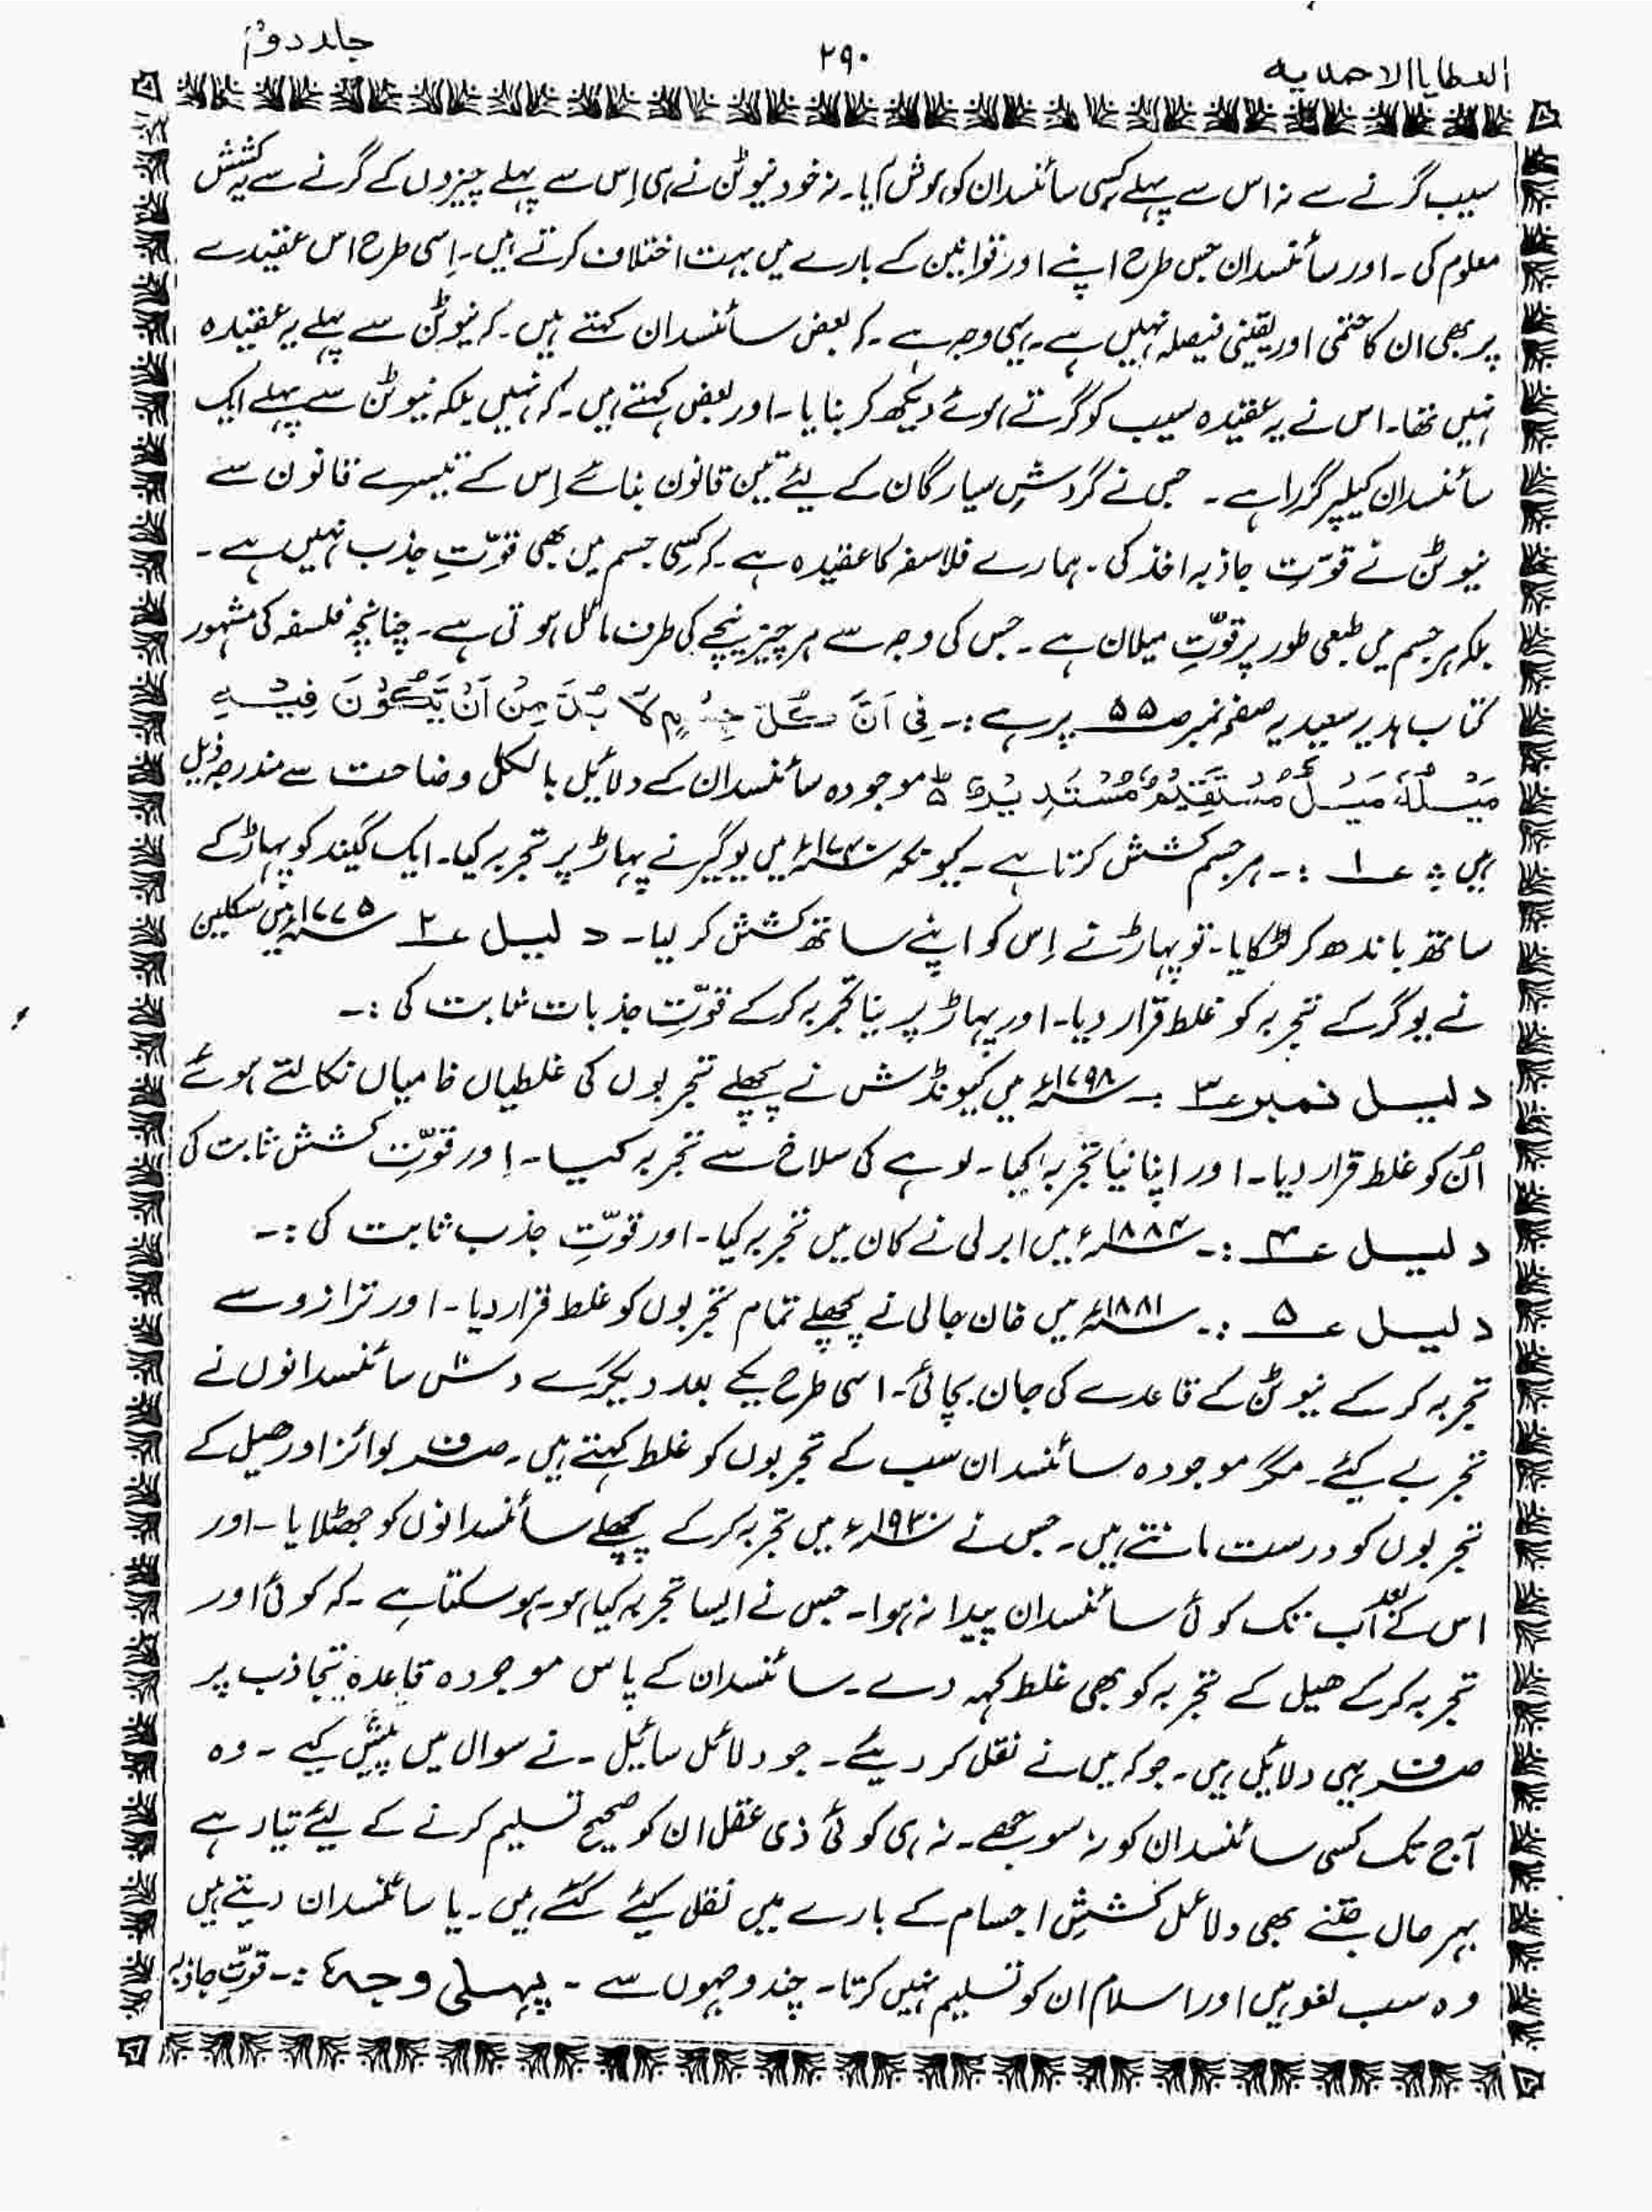 العطایا الاحمدیه ۲۹۰ جلد دوم
سیب گرنے سے نہ اس سے پہلے کسی سائنسدان کو ہوش آیا۔ نہ خود نیوٹن نے ہی اِس سے پہلے چیزوں کے گرنے سے یہ کشش
معلوم کی۔ اور سائنسدان جس طرح اپنے اور قوانین کے بارے میں بہت اختلاف کرتے ہیں۔ اِسی طرح اس عقیدے
پر بھی ان کا حتمی اور یقینی فیصلہ نہیں ہے۔ یہی وجہ ہے۔ کہ بعض سائنسدان کہتے ہیں۔ کہ نیوٹن سے پہلے یہ عقیدہ
نہیں تھا۔ اس نے یہ عقیدہ سیب کو گرتے ہوئے دیکھ کر بنایا۔ اور بعض کہتے ہیں۔ کہ نہیں بلکہ نیوٹن سے پہلے ایک
سائنسدان کیلپر گزرا ہے۔ جس نے گردشِ سیارگان کے لیئے تین قانون بنائے اِس کے تیسرے قانون سے
نیوٹن نے قوّتِ جاذبہ اخذ کی۔ ہمارے فلاسفہ کا عقیدہ ہے۔ کہ کسِی جسم میں بھی قوّتِ جذب نہیں ہے۔
بلکہ ہر جسم میں طبعی طور پر قوّتِ میلان ہے۔ جس کی وجہ سے ہر چیز نیچے کی طرف مائل ہوتی ہے۔ چنانچہ فلسفہ کی مشہور
کتاب ہدیہ سعیدیہ صفحہ نمبر صـ ۵۵ پر ہے :۔ فِی اَنَّ کُلَّ جِسْمٍ لَا بُدَّ مِنْ اَنْ یَّکُوْنَ فِیْہِ
مَیْلٌ مَیْلٌ مُسْتَقِیْمٌ مُسْتَدِیْرٌ موجودہ سائنسدان کے دلائیل بالکل وضاحت سے مندرجہ ذیل
ہیں ؛ عـ ۱ :۔ ہر جسم کشش کرتا ہے۔ کیونکہ ۱۷۴۰ء میں بوگیر نے پہاڑ پر تجربہ کیا۔ ایک گیند کو پہاڑ کے
ساتھ باندھ کر لٹکایا۔ تو پہاڑ نے اِس کو اپنے ساتھ کشش کر لیا۔ دلیل عـ ۲ ۱۷۷۵ء میں سکلین
نے بوگر کے تجربہ کو غلط قرار دیا۔ اور پہاڑ پر نیا تجربہ کر کے قوّتِ جذبات ثابت کی :۔
دلیل نمبر عـ ۳ :۔ ۱۷۹۸ء میں کیونڈش نے پچھلے تجربوں کی غلطیاں خامیاں نکالتے ہوئے
اُن کو غلط قرار دیا۔ اور اپنا نیا تجربہ کیا۔ لوہے کی سلاخ سے تجربہ کیا۔ اور قوّتِ کشش ثابت کی
دلیل عـ ۴ :۔ ۱۸۸۴ء میں ایرلی نے کان میں تجربہ کیا۔ اور قوّتِ جذب ثابت کی :۔
دلیل عـ ۵ :۔ ۱۸۸۱ء میں خان جالی نے پچھلے تمام تجربوں کو غلط قرار دیا۔ اور ترازو سے
تجربہ کر کے نیوٹن کے قاعدے کی جان بچائی۔ اسی طرح یکے بعد دیگرے دش سائنسدانوں نے
تجربے کیئے۔ مگر موجودہ سائنسدان سب کے تجربوں کو غلط کہتے ہیں۔ صرف بوائز اور ھیل کے
تجربوں کو درست مانتے ہیں۔ جس نے ۱۹۳۰ء میں تجربہ کر کے پچھلے سائنسدانوں کو جھٹلایا۔ اور
اس کے بعد اب تک کوئی سائنسدان پیدا نہ ہوا۔ جس نے ایسا تجربہ کیا ہو۔ ہو سکتا ہے۔ کہ کوئی اور
تجربہ کر کے ھیل کے تجربہ کو بھی غلط کہہ دے۔ سائنسدان کے پاس موجودہ قاعدہ تجاذب پر
صرف یہی دلائیل ہیں۔ جو کہ میں نے نقل کر دیئے۔ جو دلائل سائیل۔ نے سوال میں پیش کیے۔ وہ
آج تک کسی سائنسدان کو نہ سوجھے۔ نہ ہی کوئی ذی عقل ان کو صحیح تسلیم کرنے کے لیئے تیار ہے
بہر حال جتنے بھی دلائل کششِ اجسام کے بارے میں نقل کیئے گئے ہیں۔ یا سائنسدان دیتے ہیں
وہ سب لغو ہیں اور اسلام ان کو تسلیم نہیں کرتا۔ چند وجہوں سے۔ پہلی وجہ :۔ قوّتِ جاذبہ